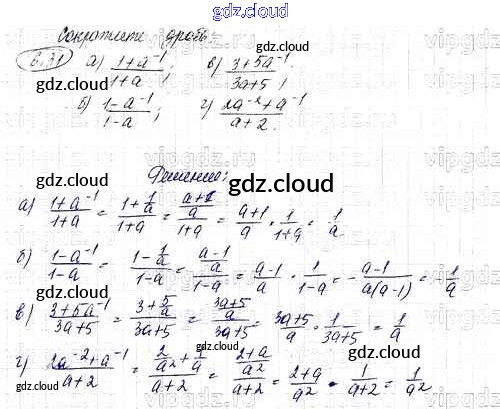 gdz.cloud
Сократите дробь
6.31 а) \frac{1+a^{-1}}{1+a}; в) \frac{3+5a^{-1}}{3a+5};
б) \frac{1-a^{-1}}{1-a}; г) \frac{2a^{-2}+a^{-1}}{a+2}.
Решение:
а) \frac{1+a^{-1}}{1+a} = \frac{1+\frac{1}{a}}{1+a} = \frac{\frac{a+1}{a}}{1+a} = \frac{a+1}{a} \cdot \frac{1}{1+a} = \frac{1}{a}
б) \frac{1-a^{-1}}{1-a} = \frac{1-\frac{1}{a}}{1-a} = \frac{\frac{a-1}{a}}{1-a} = \frac{a-1}{a} \cdot \frac{1}{1-a} = -\frac{a-1}{a(a-1)} = -\frac{1}{a}
в) \frac{3+5a^{-1}}{3a+5} = \frac{3+\frac{5}{a}}{3a+5} = \frac{\frac{3a+5}{a}}{3a+5} = \frac{3a+5}{a} \cdot \frac{1}{3a+5} = \frac{1}{a}
г) \frac{2a^{-2}+a^{-1}}{a+2} = \frac{\frac{2}{a^2}+\frac{1}{a}}{a+2} = \frac{\frac{2+a}{a^2}}{a+2} = \frac{2+a}{a^2} \cdot \frac{1}{a+2} = \frac{1}{a^2}